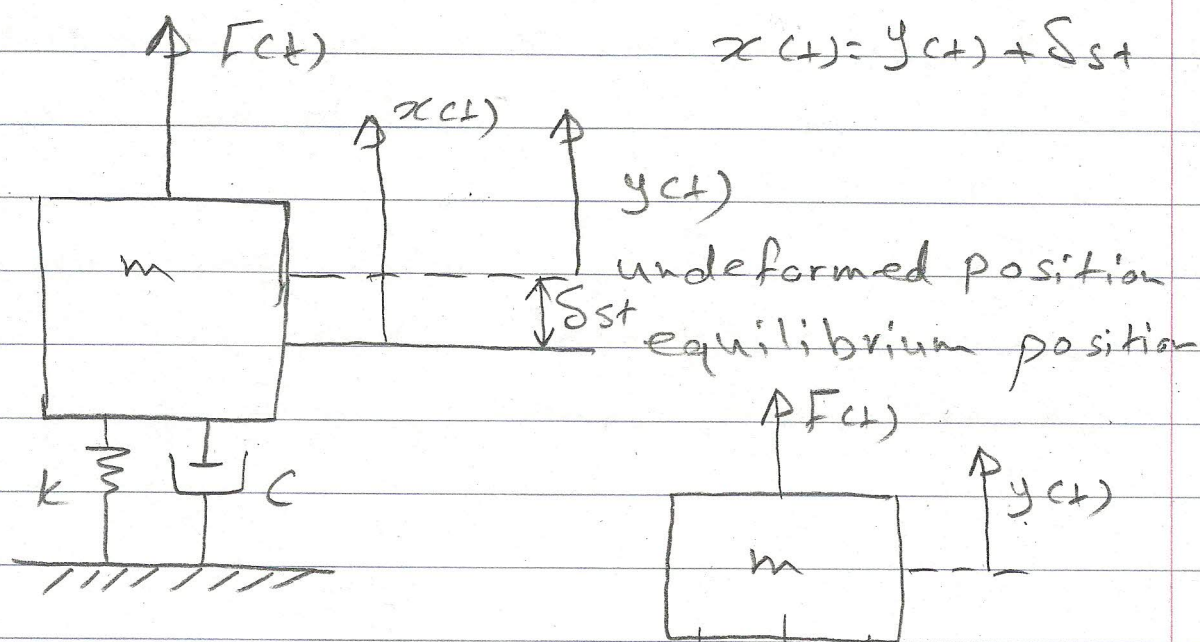 F(t)
x(t) = y(t) + δst
x(t)
y(t)
m
undeformed position
δst
equilibrium position
F(t)
k
C
y(t)
m